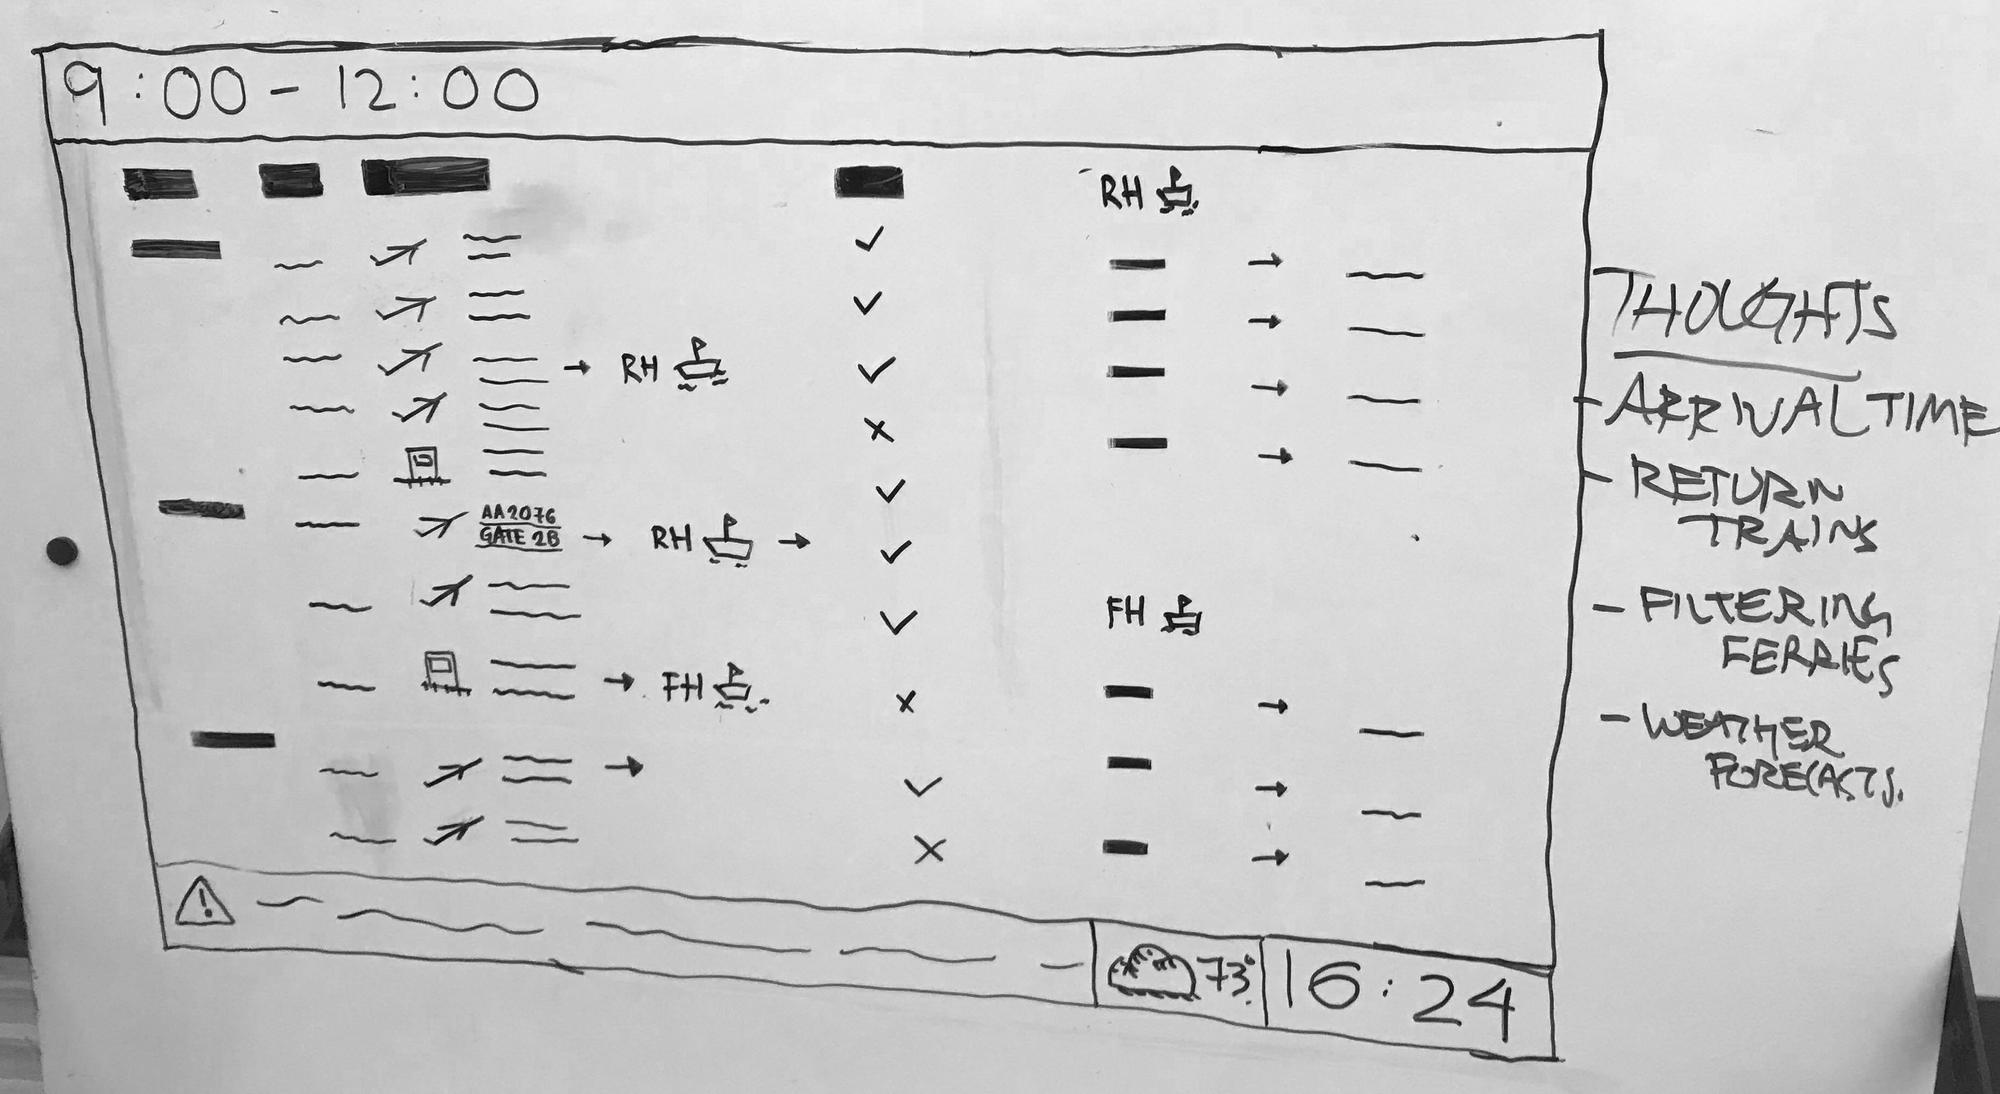 9:00 - 12:00
RH
RH
AA2076
GATE 2B
RH
FH
FH
73°
16:24
THOUGHTS
- ARRIVAL TIME
- RETURN
TRAINS
- FILTERING
FERRIES
- WEATHER
FORECASTS.